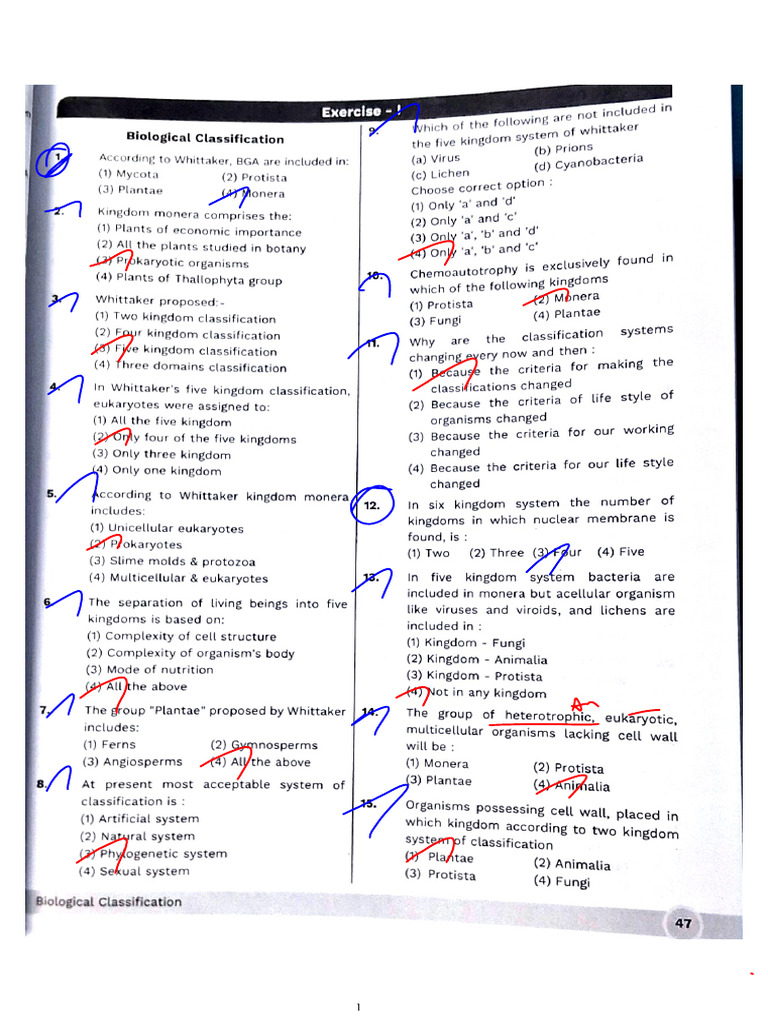 Exercise - I
Biological Classification
1. According to Whittaker, BGA are included in:
(1) Mycota (2) Protista
(3) Plantae (4) Monera
2. Kingdom monera comprises the:
(1) Plants of economic importance
(2) All the plants studied in botany
(3) Prokaryotic organisms
(4) Plants of Thallophyta group
3. Whittaker proposed:-
(1) Two kingdom classification
(2) Four kingdom classification
(3) Five kingdom classification
(4) Three domains classification
4. In Whittaker's five kingdom classification,
eukaryotes were assigned to:
(1) All the five kingdom
(2) Only four of the five kingdoms
(3) Only three kingdom
(4) Only one kingdom
5. According to Whittaker kingdom monera
includes:
(1) Unicellular eukaryotes
(2) Prokaryotes
(3) Slime molds & protozoa
(4) Multicellular & eukaryotes
6. The separation of living beings into five
kingdoms is based on:
(1) Complexity of cell structure
(2) Complexity of organism's body
(3) Mode of nutrition
(4) All the above
7. The group "Plantae" proposed by Whittaker
includes:
(1) Ferns (2) Gymnosperms
(3) Angiosperms (4) All the above
8. At present most acceptable system of
classification is :
(1) Artificial system
(2) Natural system
(3) Phylogenetic system
(4) Sexual system
9. Which of the following are not included in
the five kingdom system of whittaker
(a) Virus (b) Prions
(c) Lichen (d) Cyanobacteria
Choose correct option :
(1) Only 'a' and 'd'
(2) Only 'a' and 'c'
(3) Only 'a', 'b' and 'd'
(4) Only 'a', 'b' and 'c'
10. Chemoautotrophy is exclusively found in
which of the following kingdoms
(1) Protista (2) Monera
(3) Fungi (4) Plantae
11. Why are the classification systems
changing every now and then :
(1) Because the criteria for making the
classifications changed
(2) Because the criteria of life style of
organisms changed
(3) Because the criteria for our working
changed
(4) Because the criteria for our life style
changed
12. In six kingdom system the number of
kingdoms in which nuclear membrane is
found, is :
(1) Two (2) Three (3) Four (4) Five
13. In five kingdom system bacteria are
included in monera but acellular organism
like viruses and viroids, and lichens are
included in :
(1) Kingdom - Fungi
(2) Kingdom - Animalia
(3) Kingdom - Protista
(4) Not in any kingdom
An
14. The group of heterotrophic, eukaryotic,
multicellular organisms lacking cell wall
will be :
(1) Monera (2) Protista
(3) Plantae (4) Animalia
15. Organisms possessing cell wall, placed in
which kingdom according to two kingdom
system of classification
(1) Plantae (2) Animalia
(3) Protista (4) Fungi
Biological Classification
47
1